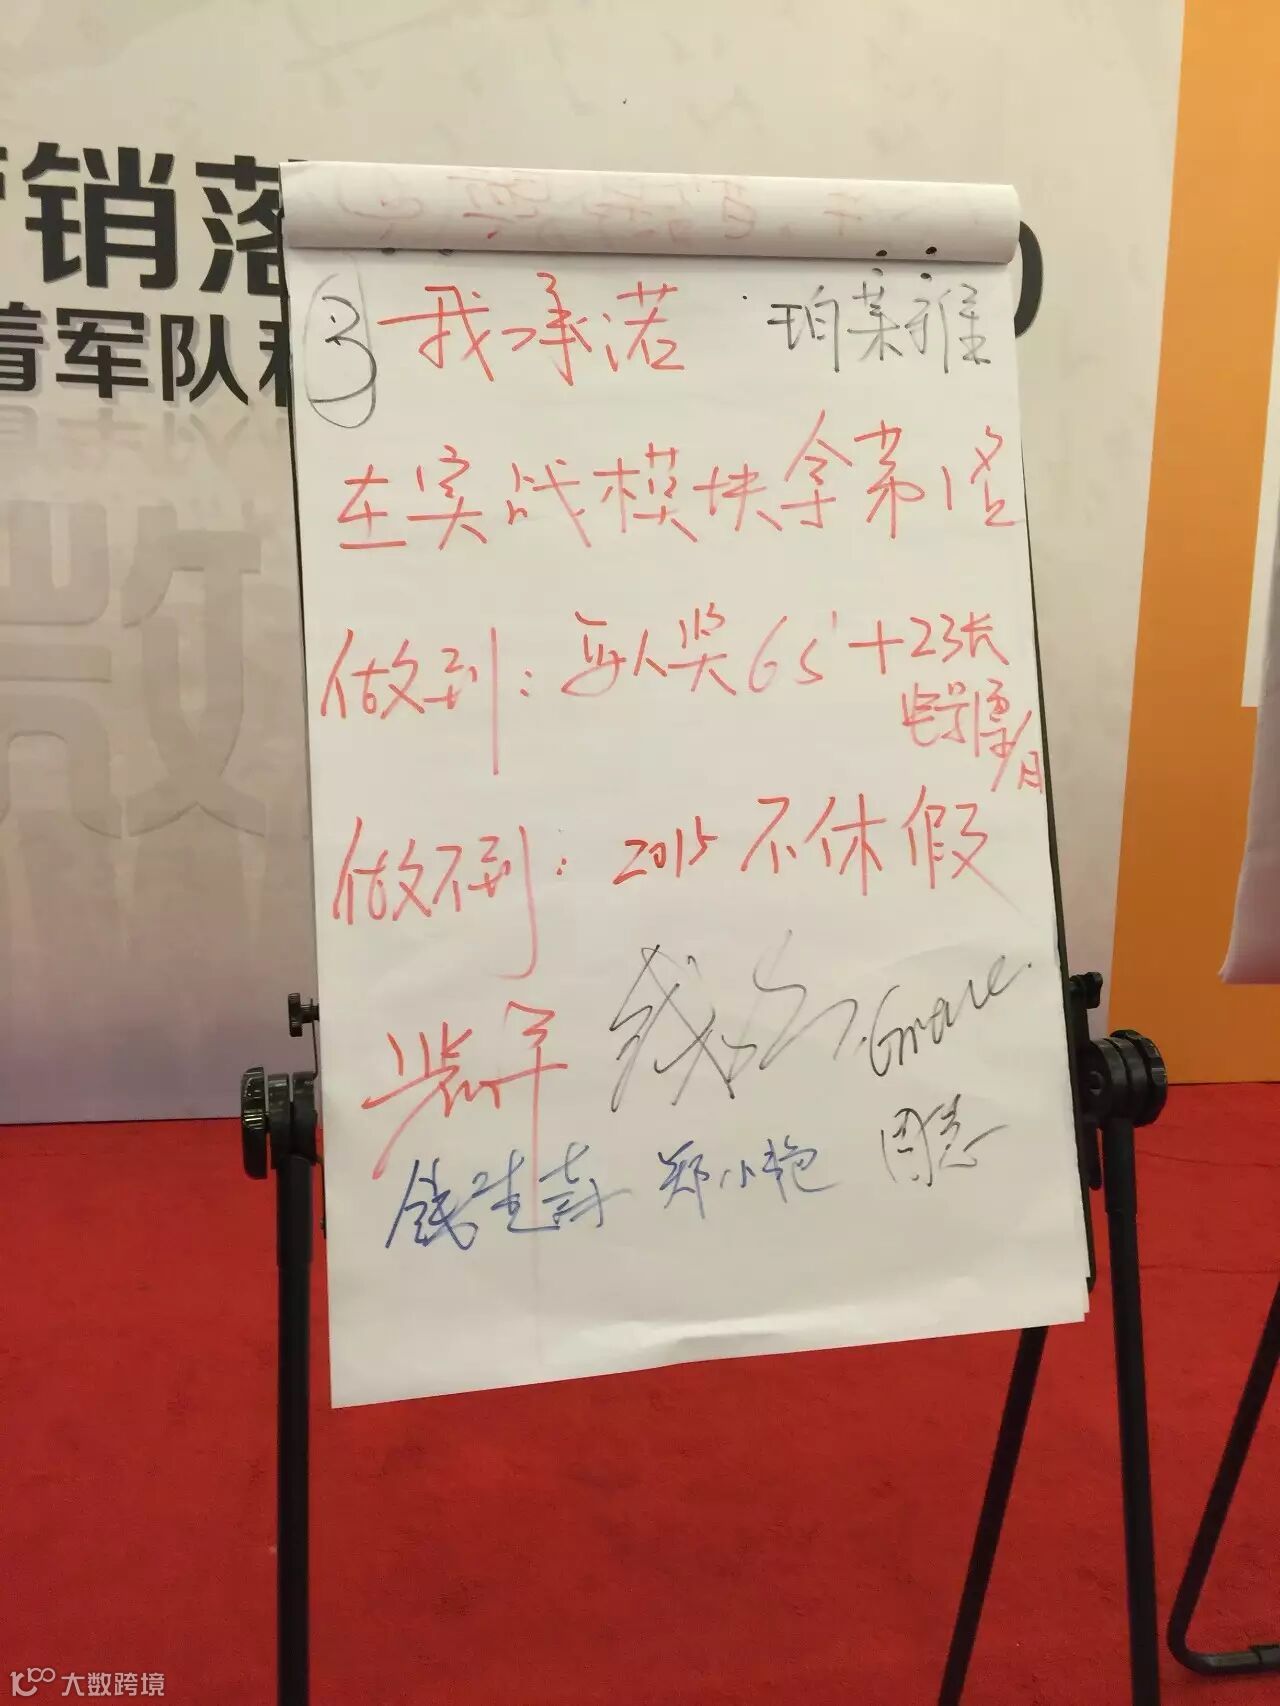 销落
着军队
③ 我承诺 珀莱雅
在实战模块拿第1名
做到：每人奖6S+2张
电影票/月
做不到：2015不休假
Grace
郑小艳 周志
大数跨境